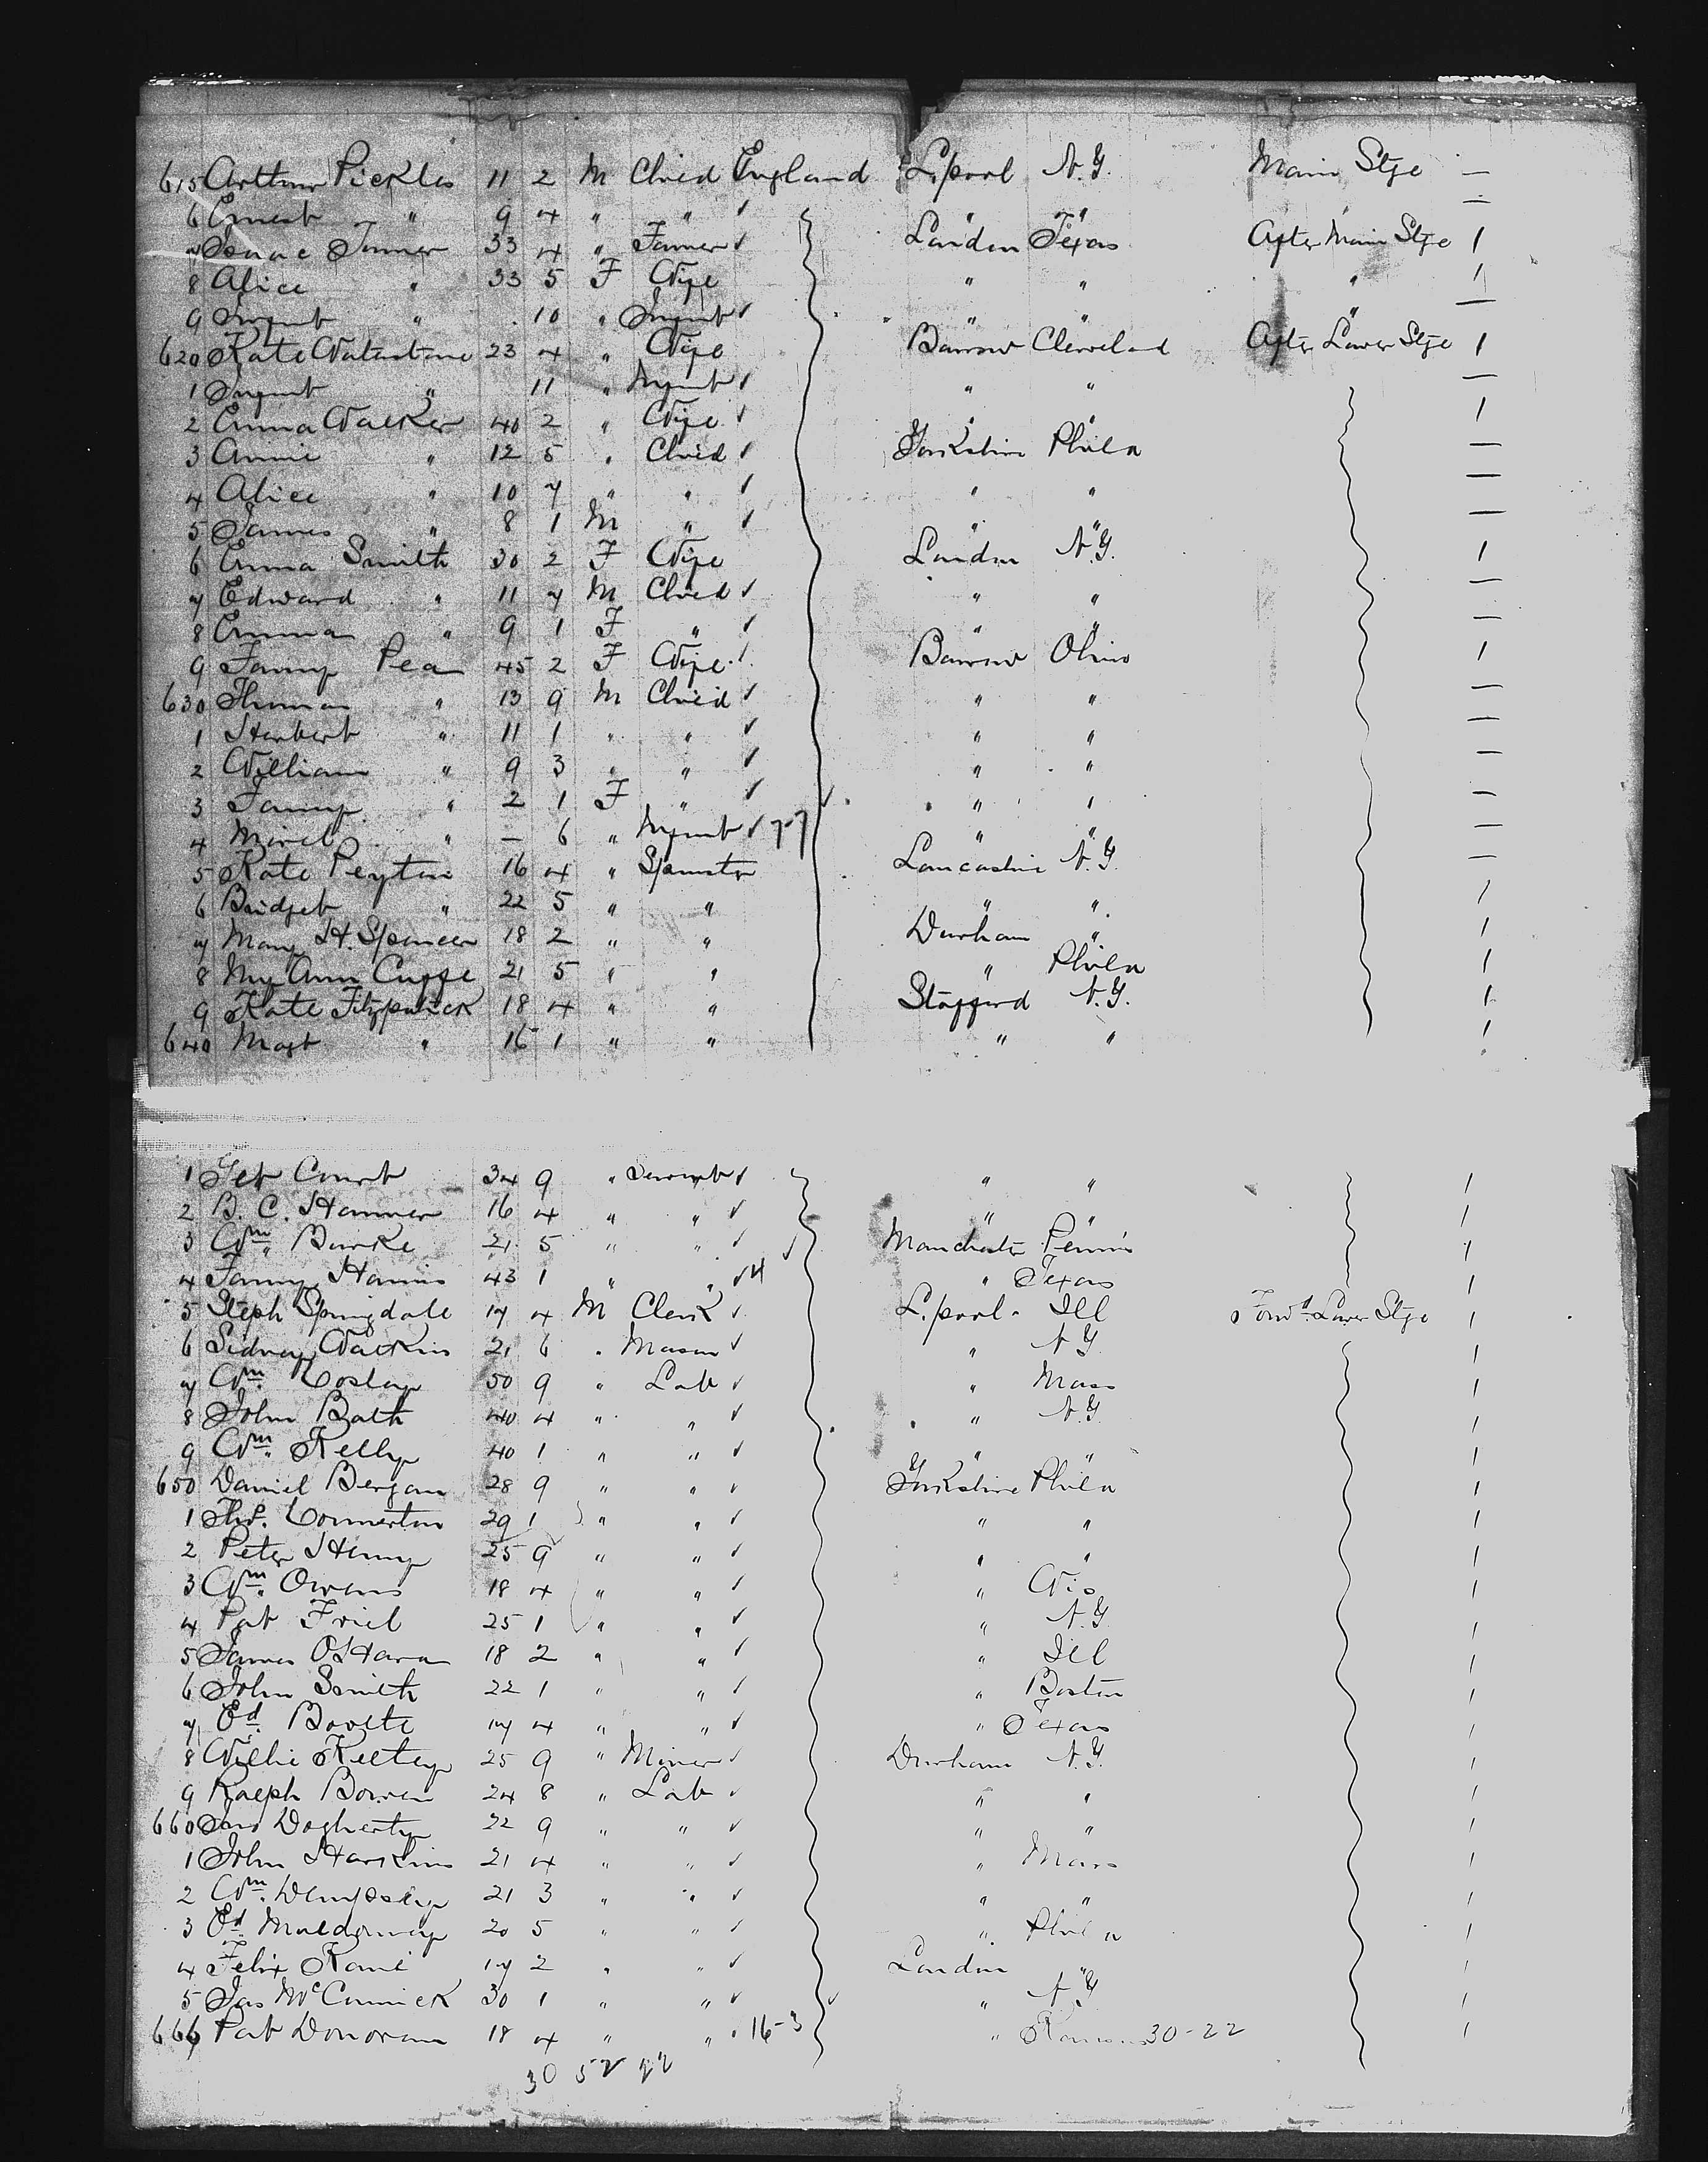 615 Arthur Pickles 11 2 M Child England L.pool N.Y. Main Stge —
6 Ernest " 9 4 " " ✓ " " " —
7 Isaac Turner 33 4 " Farmer ✓ London Texas After Main Stge 1
8 Alice " 33 5 F Wife " " " 1
9 Infant " 10 " Infant ✓ " " " —
620 Kate 23 4 " Wife Barrow Cleveland After Lower Stge 1
1 Infant " 11 " Infant ✓ " " —
2 Emma Walker 40 2 " Wife ✓ " " 1
3 Annie " 12 5 " Child ✓ Yorkshire Phila —
4 Alice " 10 7 " " ✓ " " —
5 James " 8 1 M " ✓ " " —
6 Emma Smith 30 2 F Wife London N.Y. 1
7 Edward " 11 7 M Child ✓ " " —
8 Emma " 9 1 F " ✓ " " —
9 Fanny Pea 45 2 F Wife ✓ Barrow Ohio 1
630 " 13 9 M Child ✓ " " —
1 Herbert " 11 1 " " ✓ " " —
2 William " 9 3 " " ✓ " " —
3 Fanny " 2 1 F " ✓ " " —
4 " — 6 " Infant ✓ 7-7 " " —
5 Kate Peyton 16 4 " Spinster Lancashire N.Y. —
6 Bridget " 22 5 " " " " 1
7 Mary H. Spencer 18 2 " " Durham " 1
8 My Ann Cuffe 21 5 " " " Phila 1
9 Kate Fitzpatrick 18 4 " " Stafford N.Y. 1
640 Magt " 16 1 " " " " 1
1 Court 34 9 " Servant ✓ " " 1
2 B. C. Hanmer 16 4 " " ✓ " " 1
3 Wm. Burke 21 5 " " ✓ Manchester Penn 1
4 Fanny Harris 43 1 " " ✓ 4 " Texas 1
5 Steph Springdale 17 4 M Clerk ✓ L.pool Ill Forwd. Lower Stge 1
6 Sidney Watkins 21 6 " Mason ✓ " N.Y. 1
7 Wm. Costay 50 9 " Lab ✓ " Mass 1
8 John Bath 40 4 " " ✓ " N.Y. 1
9 Wm. Kelly 40 1 " " ✓ " " 1
650 Daniel Bergan 28 9 " " ✓ Yorkshire Phila 1
1 Thos. Connerton 29 1 " " ✓ " " 1
2 Peter Henry 25 9 " " ✓ " " 1
3 Wm. Owens 18 4 " " ✓ " Wis 1
4 Pat Friel 25 1 " " ✓ " N.Y. 1
5 James O'Hara 18 2 " " ✓ " Ill 1
6 John Smith 22 1 " " ✓ " Boston 1
7 Ed. 17 4 " " ✓ " Texas 1
8 Willie Kelley 25 9 " Miner ✓ Durham N.Y. 1
9 Ralph Bowen 24 8 " Lab ✓ " " 1
660 Jno Dogherty 22 9 " " ✓ " " 1
1 John Harkins 21 4 " " ✓ " Mass 1
2 Wm. Dempsey 21 3 " " ✓ " " 1
3 Ed. Muldowney 20 5 " " ✓ " Phila 1
4 Felix Kane 17 2 " " ✓ London " 1
5 Jas McCormick 30 1 " " ✓ " N.Y. 1
666 Pat Donovan 18 4 " " 16-3 " Kansas 30-22 1
30 52 22